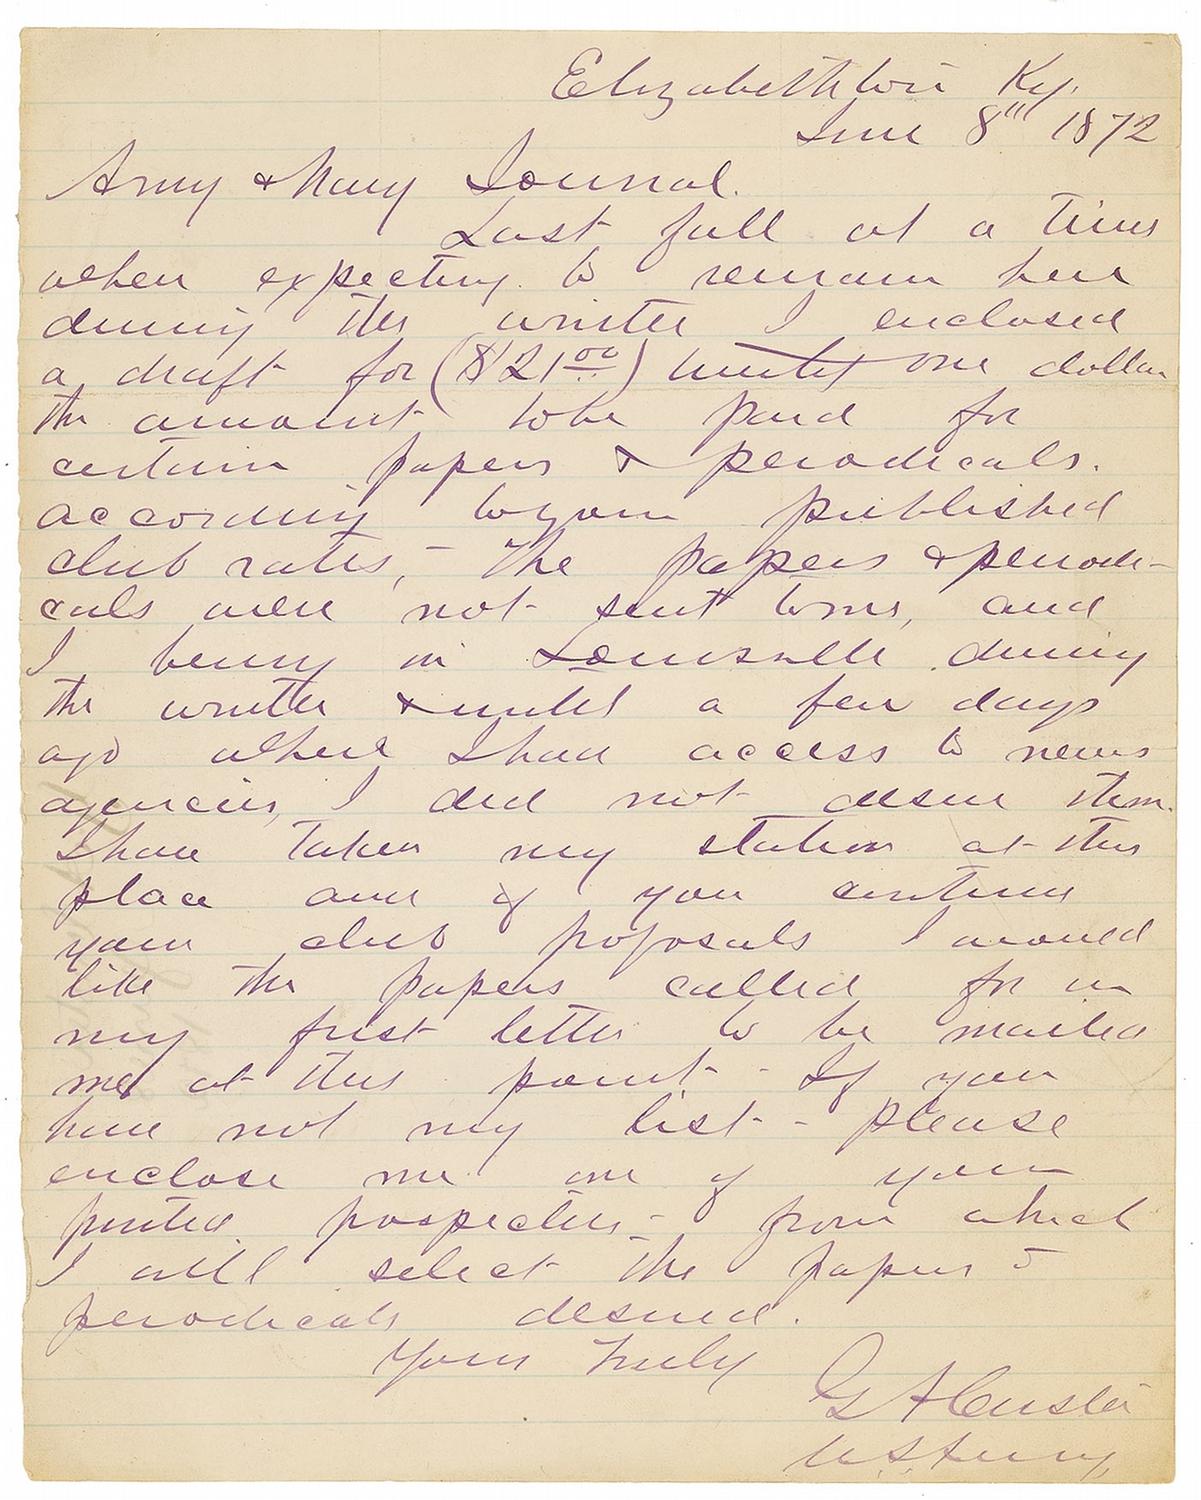 Elizabethtown Ky.
June 8th 1872
Army & Navy Journal.
Last fall at a time
when expecting to remain here
during the winter I enclosed
a draft for ($21.00) twenty one dollars
the amount to be paid for
certain papers & periodicals.
according to your published
club rates, - The papers & periodi-
cals were not sent to me, and
I being in Louisville during
the winter & until a few days
ago where I had access to news
agencies, I did not desire them.
I have taken my station at this
place and if you continue
your club proposals I would
like the papers called for in
my first letter to be mailed
me at this point - If you
have not my list - please
enclose me one of your
printed prospectus - from which
I will select the papers &
periodicals desired.
Yours Truly
G A Custer
U.S. Army,